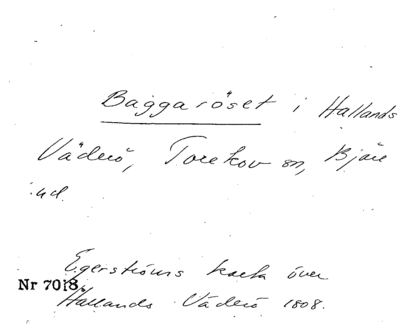 Baggaröset i Hallands
Väderö, Torekov sn, Bjäre
hd.
Egerströms karta över
Nr 7018.
Hallands Väderö 1808.